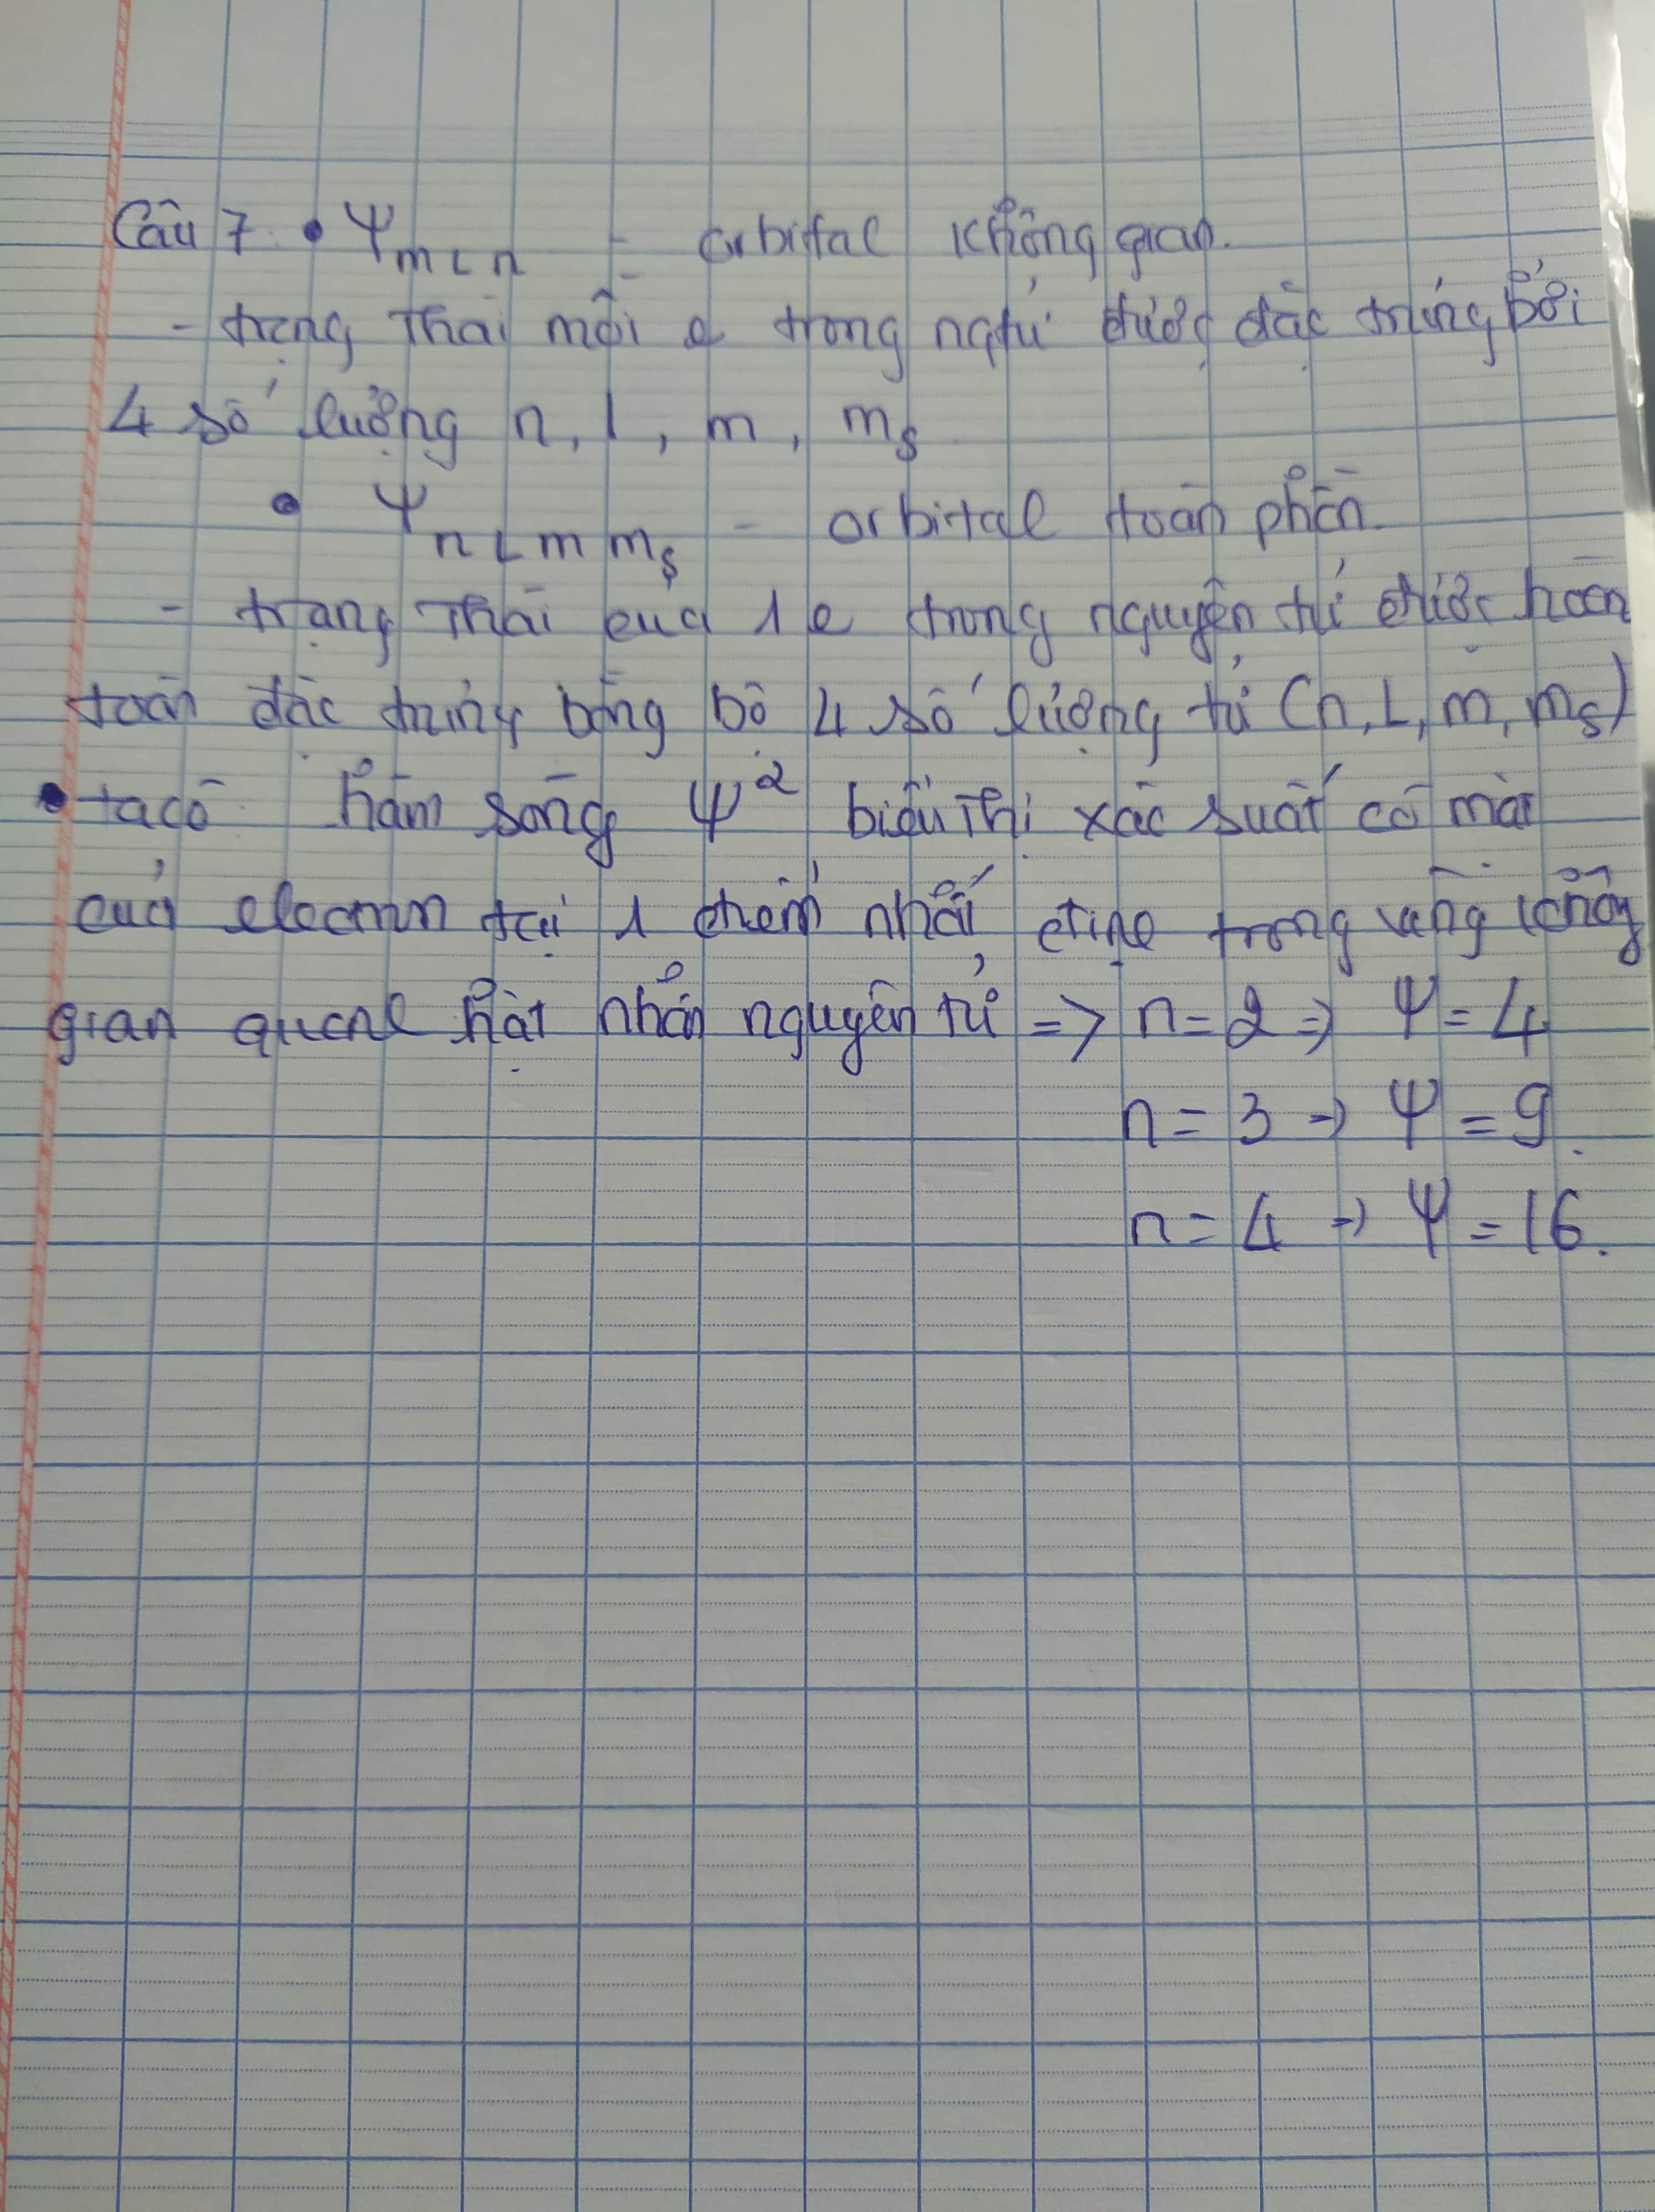 Câu 7. • Ψ m L n - orbital không gian.
- trạng thái mỗi e trong ngtử được đặc trưng bởi
4 số lượng n, l, m, ms
• Ψ n L m ms - orbital toàn phần.
- trạng thái của 1 e trong nguyên tử được hoàn
toàn đặc trưng bằng bộ 4 số lượng tử (n, L, m, ms)
• ta có hàm sóng Ψ² biểu thị xác suất có mặt
của electron tại 1 điểm nhất định trong vùng không
gian quanh hạt nhân nguyên tử => n = 2 => Ψ = 4
n = 3 -> Ψ = 9.
n = 4 -> Ψ = 16.